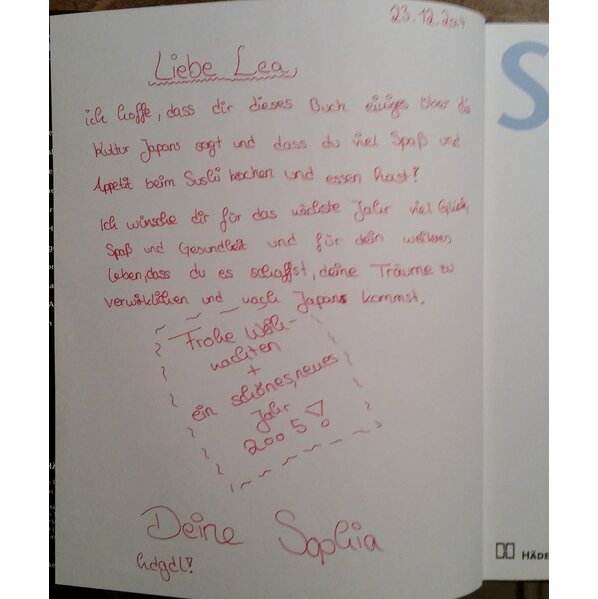 23.12.2004
Liebe Lea,
ich hoffe, dass dir dieses Buch einiges über die
Kultur Japans sagt und dass du viel Spaß und
Appetit beim Sushi kochen und essen hast!
Ich wünsche dir für das nächste Jahr viel Glück
Spaß und Gesundheit und für dein weiteres
Leben, dass du es schaffst, deine Träume zu
verwirklichen und nach Japan kommst.
Frohe Weih-
nachten
+
ein schönes, neues
Jahr
2005!
Deine Sophia
hdgdl!
S
HÄDE